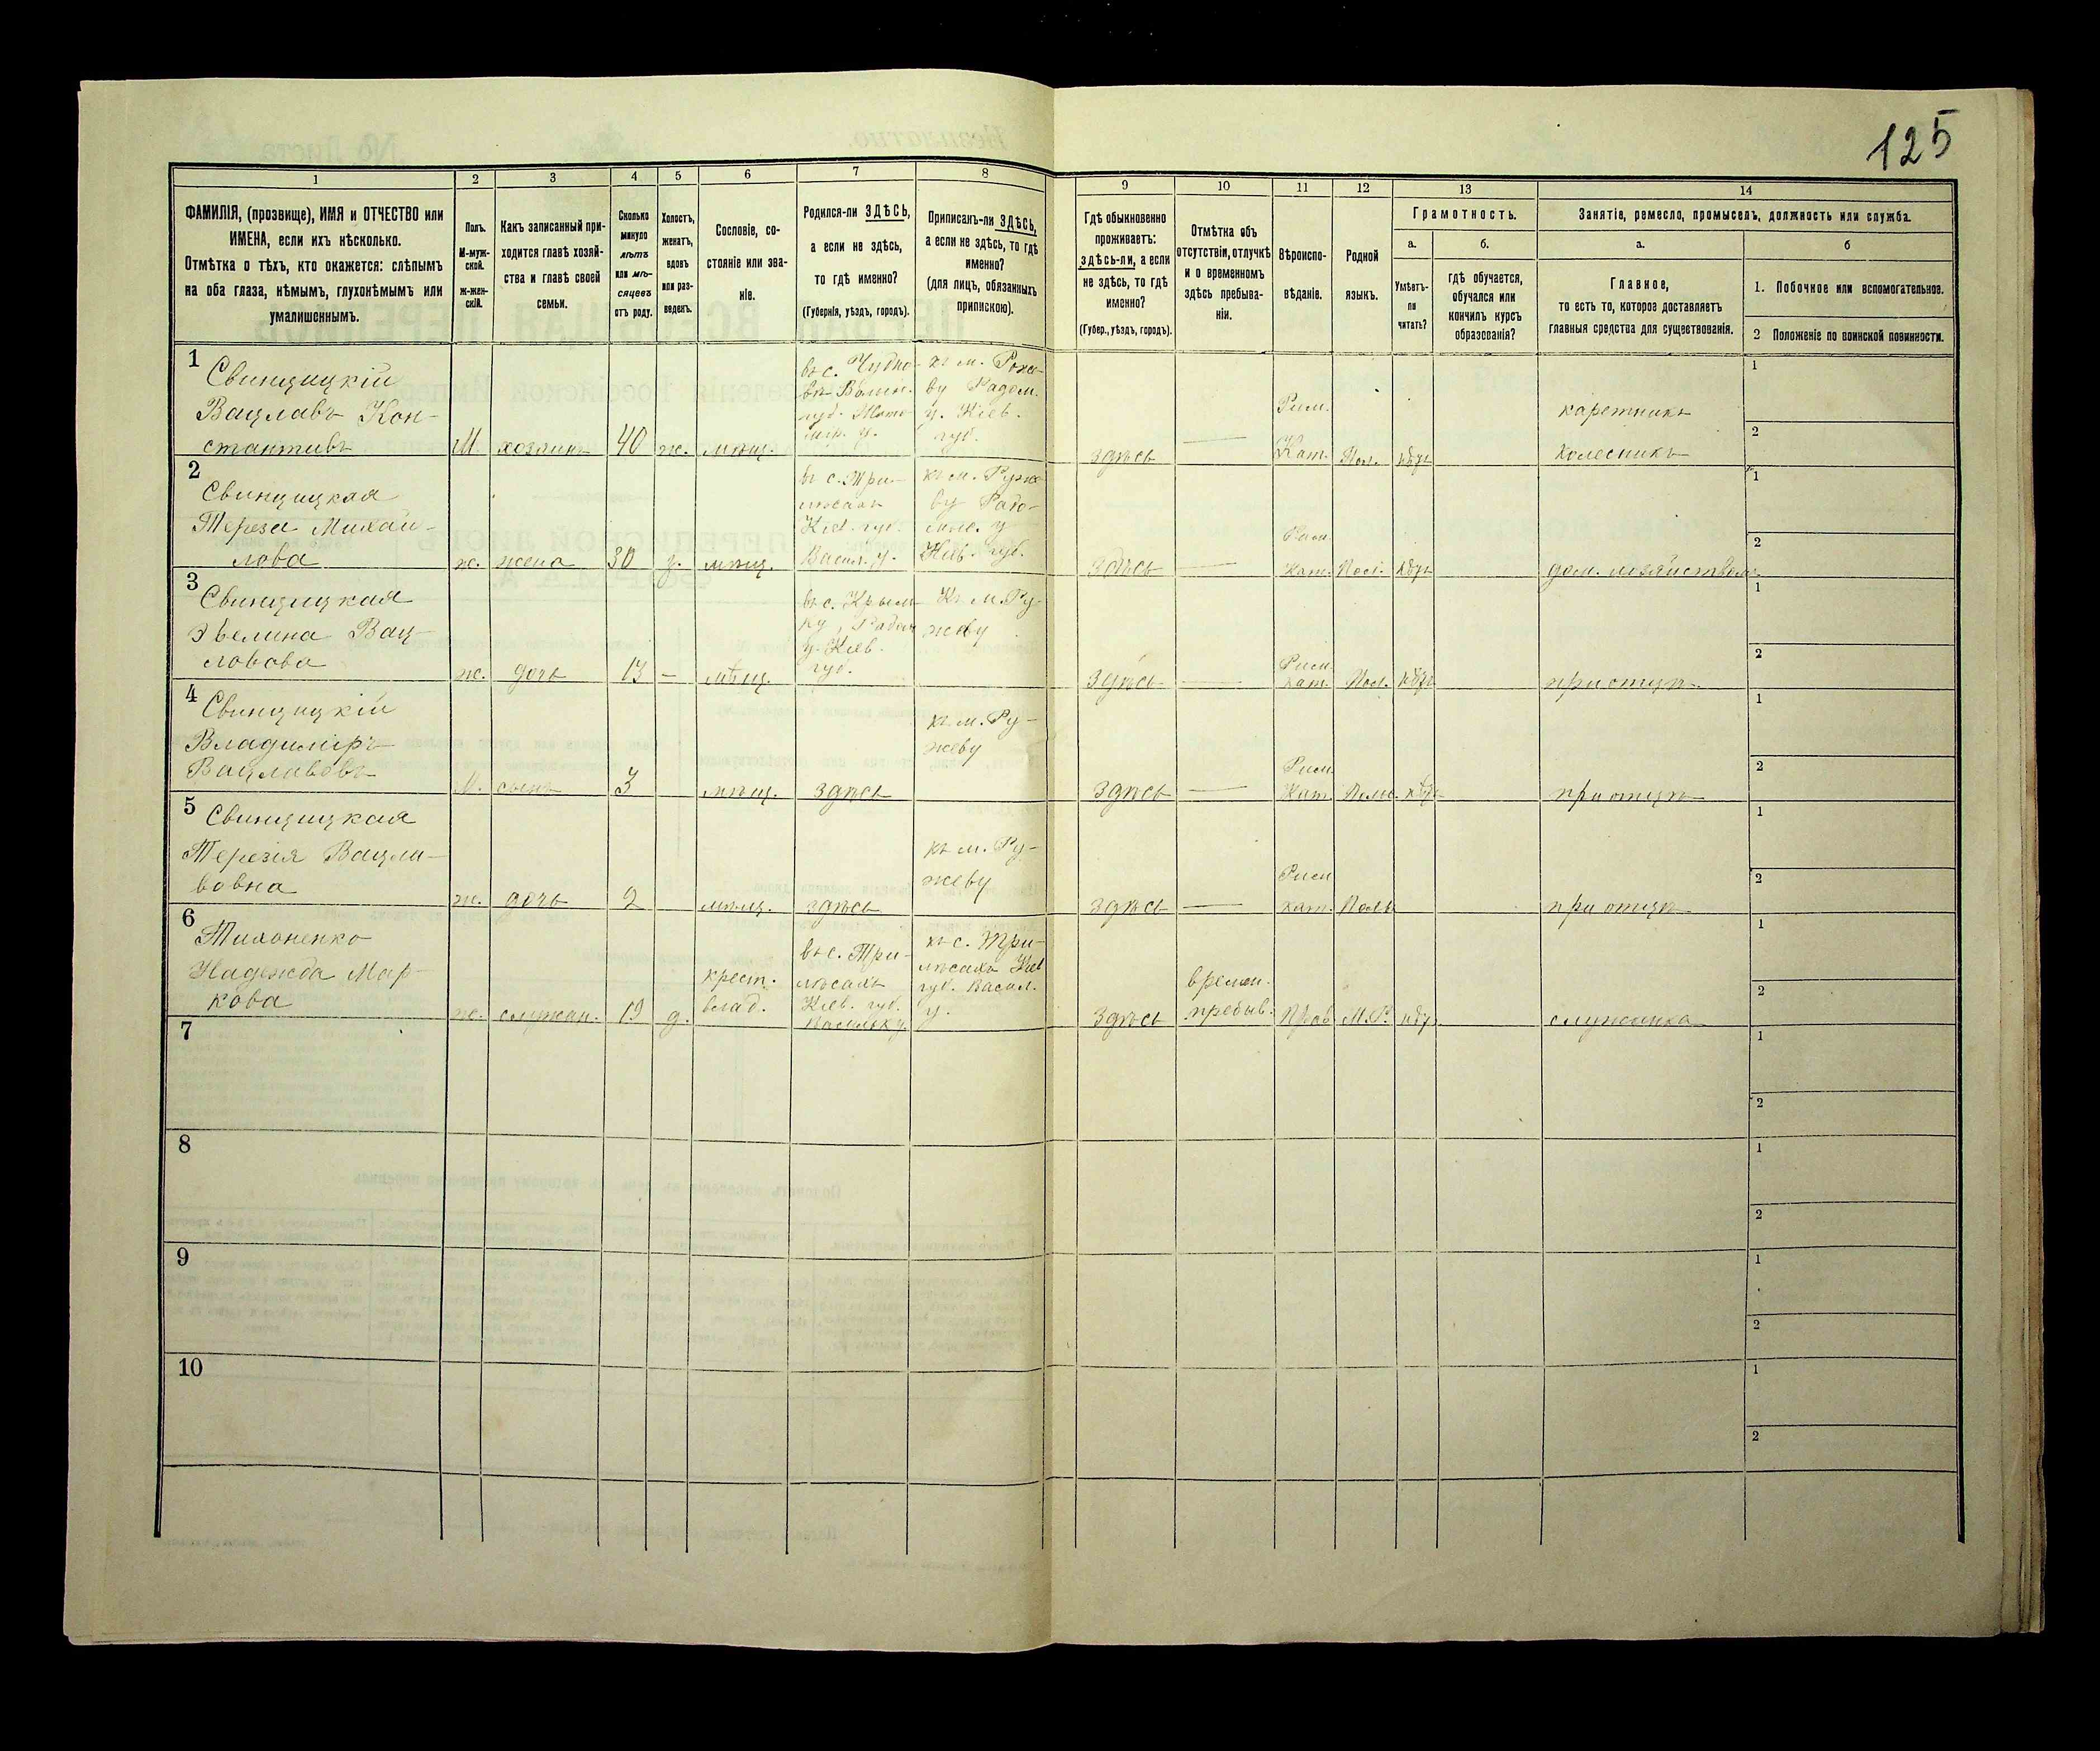 125
1
2
3
4
5
6
7
8
9
10
11
12
13
14
ФАМИЛІЯ, (прозвище), ИМЯ и ОТЧЕСТВО или
ИМЕНА, если ихъ нѣсколько.
Отмѣтка о тѣхъ, кто окажется: слѣпымъ
на оба глаза, нѣмымъ, глухонѣмымъ или
умалишеннымъ.
Полъ.
М-муж-
ской.
Ж-жен-
скій.
Какъ записанный при-
ходится главѣ хозяй-
ства и главѣ своей
семьи.
Сколько
минуло
лѣтъ
или мѣ-
сяцевъ
отъ роду.
Холостъ,
женатъ,
вдовъ
или раз-
веденъ.
Сословіе, со-
стояніе или зва-
ніе.
Родился-ли ЗДѢСЬ,
а если не здѣсь,
то гдѣ именно?
(Губернія, уѣздъ, городъ).
Приписанъ-ли ЗДѢСЬ,
а если не здѣсь, то гдѣ
именно?
(для лицъ, обязанныхъ
припискою).
Гдѣ обыкновенно
проживаетъ:
здѣсь-ли, а если
не здѣсь, то гдѣ
именно?
(Губер., уѣздъ, городъ).
Отмѣтка объ
отсутствіи, отлучкѣ
и о временномъ
здѣсь пребыва-
ніи.
Вѣроиспо-
вѣданіе.
Родной
языкъ.
Грамотность.
а.
Умѣетъ-
ли
читать?
б.
гдѣ обучается,
обучался или
кончилъ курсъ
образованія?
Занятіе, ремесло, промыселъ, должность или служба.
а.
Главное,
то есть то, которое доставляетъ
главныя средства для существованія.
б
1. Побочное или вспомогательное.
2 Положеніе по воинской повинности.
1
Свинцицкій
Вацлавъ Кон-
стантивъ
М. хозяинъ 40 ж. мѣщ.
въ с. Чудно-
въ Волын.
губ. Жито-
мір. у.
къ м.
ву Радом.
у. Кіев.
губ.
здѣсь
Рим.
Кат. Пол.
каретникъ
колесникъ
1
2
2
Свинцицкая
Тереза Михай-
лова
ж. жена 30 з. мѣщ.
въ с. Три-
лѣсахъ
Кіев. губ.
Васил. у.
къ м. Руже
ву Радо-
у
Кіев. губ.
здѣсь
Рим.
кат. Пол.
дом.
1
2
3
Свинцицкая
Эвелина Вац-
лавова
ж. дочь 13 – мѣщ.
въ с. Крым-
ку, Радом
у. Кіев.
губ.
Къ м. Ру-
жеву
здѣсь
Рим.
кат. Пол.
при отцѣ
1
2
4
Свинцицкій
Владиміръ
Вацлавовъ
М. сынъ 3 мѣщ. здѣсь
къ м. Ру-
жеву
здѣсь
Рим.
Кат. Поль.
при отцѣ
1
2
5
Свинцицкая
Терезія Вацла-
вовна
ж. дочь 2 мѣщ. здѣсь
къ м. Ру-
жеву
здѣсь
Рим
кат. Поль
при отцѣ
1
2
6
Тихоненко
Надежда Мар-
кова
ж. служан. 19 д.
крест.
влад.
въ с. Три-
лѣсахъ
Кіев. губ.
къ с. Три-
лѣсахъ Кіев
губ. Васил.
у.
здѣсь
времен.
пребыв.
Прав. М.Р.
служанка
1
2
7
1
2
8
1
2
9
1
2
10
1
2